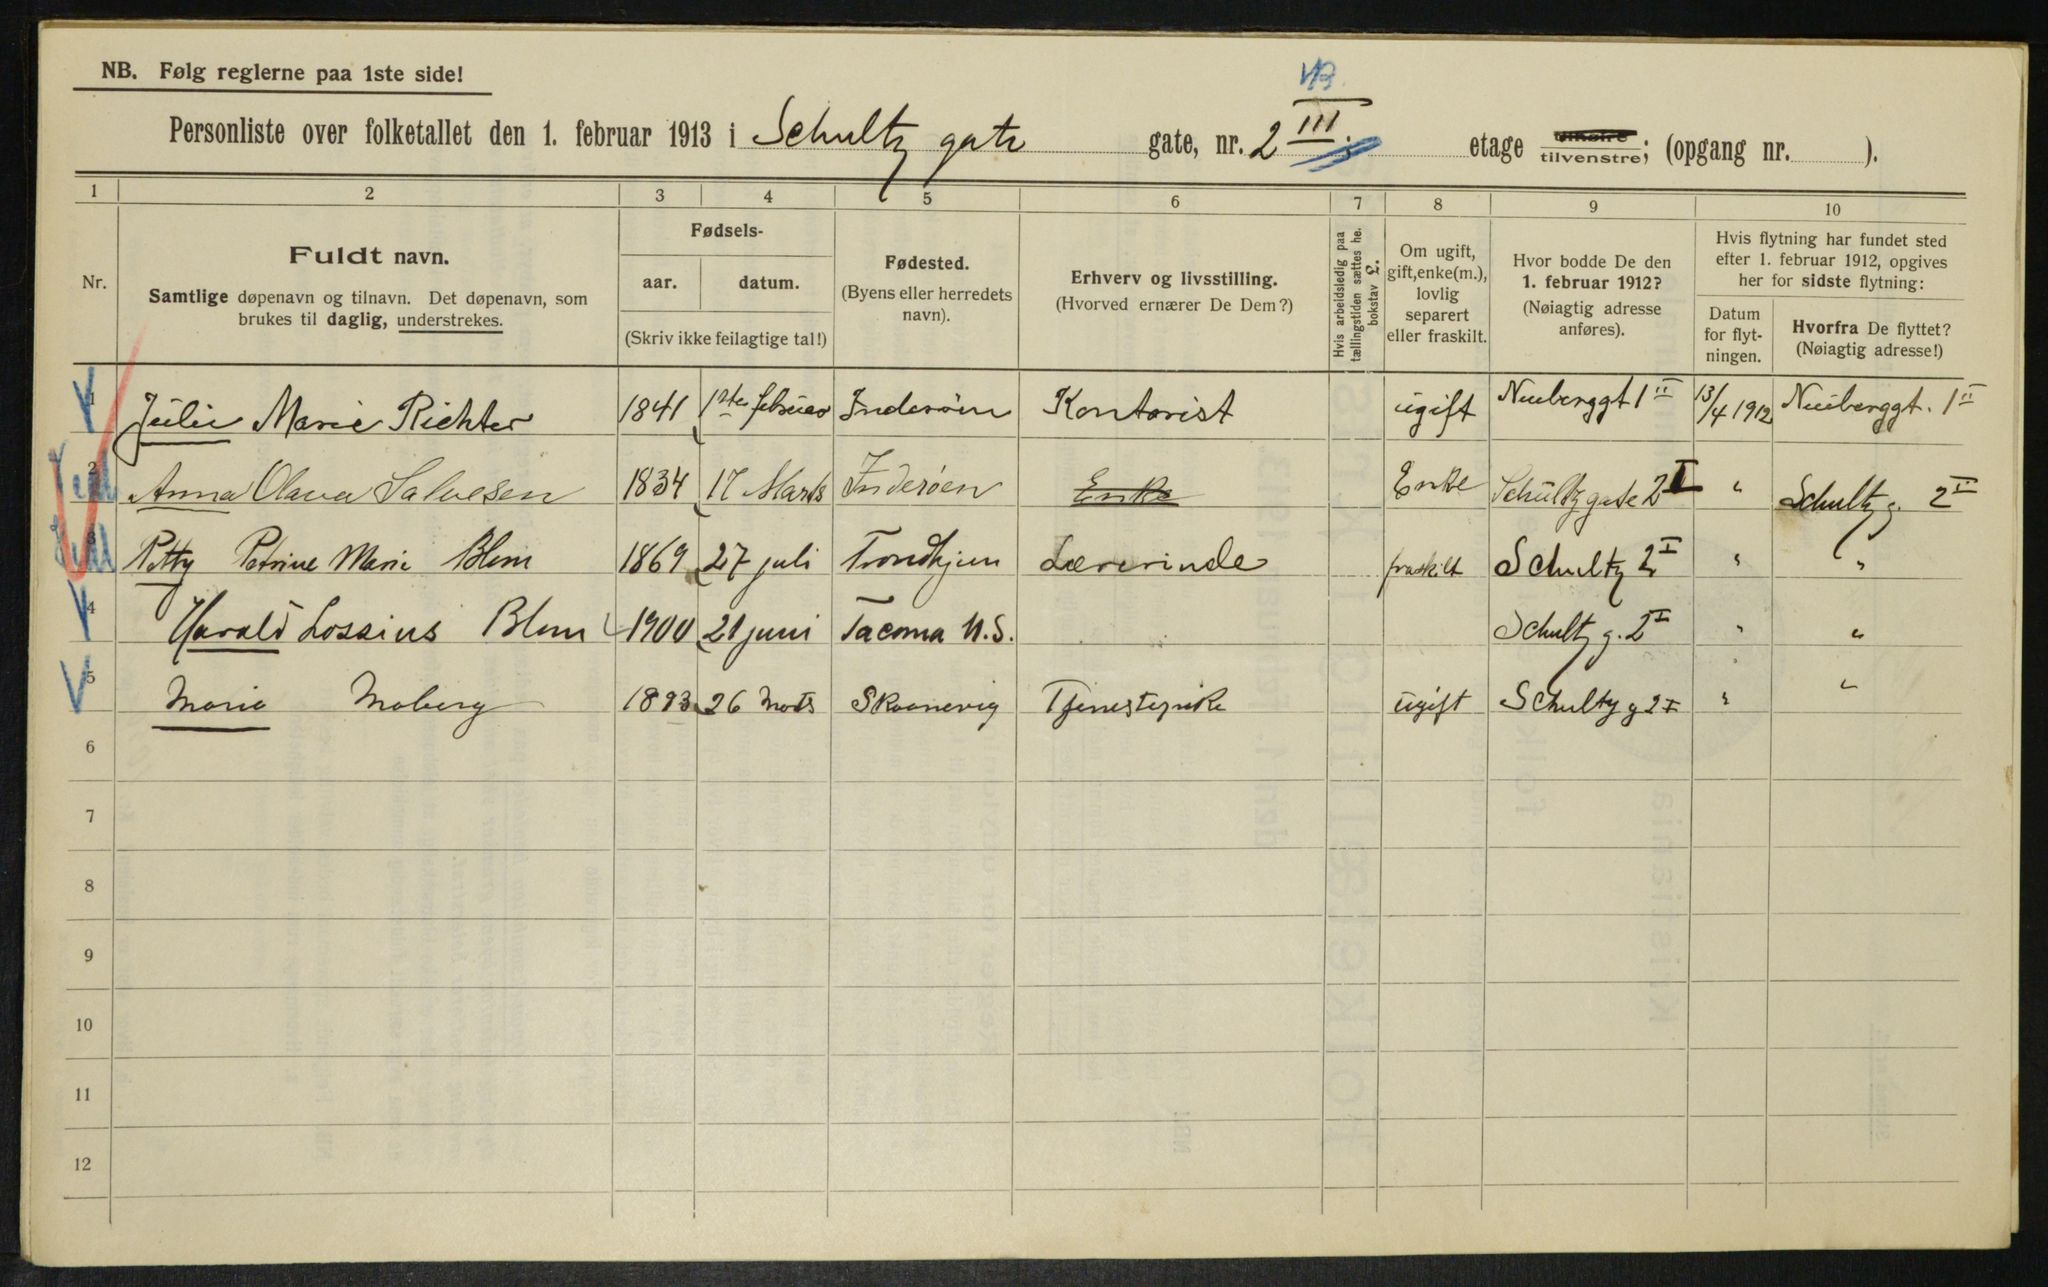 NB. Følg reglerne paa 1ste side!
Personliste over folketallet den 1. februar 1913 i Schultz gate gate, nr. 2 III etage tilhøire tilvenstre; (opgang nr. ).
1 2 3 4 5 6 7 8 9 10
Nr.
Fuldt navn.
Samtlige døpenavn og tilnavn. Det døpenavn, som
brukes til daglig, understrekes.
Fødsels-
aar. datum.
(Skriv ikke feilagtige tal!)
Fødested.
(Byens eller herredets
navn).
Erhverv og livsstilling.
(Hvorved ernærer De Dem?)
Hvis arbeidsledig paa
tællingstiden sættes he.
bokstav L.
Om ugift,
gift, enke(m.),
lovlig
separert
eller fraskilt.
Hvor bodde De den
1. februar 1912?
(Nøiagtig adresse
anføres).
Hvis flytning har fundet sted
efter 1. februar 1912, opgives
her for sidste flytning:
Datum
for flyt-
ningen.
Hvorfra De flyttet?
(Nøiagtig adresse!)
1 Julie Marie Richter 1841 1ste februar Inderøen Kontorist ugift Neuberggt 1 II 13/4 1912 Neuberggt. 1 II
2 Anna Olava Salvesen 1834 17 Marts Inderøen Enke Enke Schultzgate 2 I " Schultz g. 2 II
3 Petty Petrine Marie Blom 1869 27 juli Trondhjem Lærerinde fraskilt Schultz 2 I " "
4 Harald Lossius Blom 1900 21 juni Tacoma U.S. Schultz g. 2 I " "
5 Maria Moberg 1893 26 Marts Skaanevig Tjenestepike ugift Schultz g 2 I " "
6
7
8
9
10
11
12